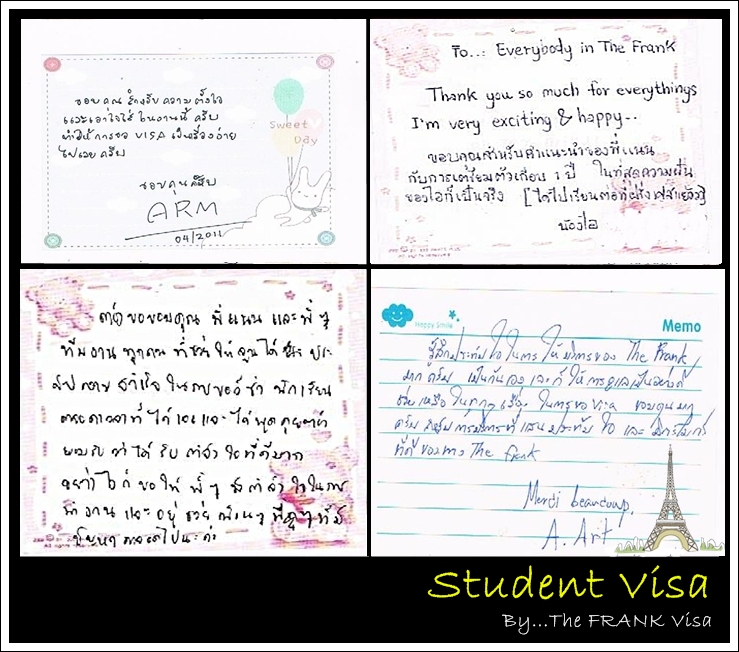 ขอบคุณ สำหรับความตั้งใจ
และเอาใจใส่ ในงานนี้ ครับ
ทำให้การขอ VISA เป็นเรื่องง่าย
ไปเลย ครับ
Sweet
Day
ขอบคุณครับ
ARM
04/2011
To... Everybody in The Frank
Thank you so much for everythings
I'm very exciting & happy..
ขอบคุณสำหรับคำแนะนำของพี่แนน
กับการเตรียมตัวเกือบ 1 ปี ในที่สุดความฝัน
ของไอก็เป็นจริง [ได้ไปเรียนต่อที่ฝรั่งเศสแล้ว]
น้องไอ
ขอขอบคุณ พี่แนน และพี่ๆ
ทีมงาน ทุกคน ที่ช่วยให้ ได้ ประ
สบความสำเร็จ ในการขอวีซ่า นักเรียน
ตลอดเวลาที่ ได้เจอและได้พูดคุย
ยอมรับ ว่าได้ รับ กำลังใจที่ดีมาก
อย่างไรก็ ขอให้ พี่ๆ มีกำลังใจในการ
ทำงาน และ อยู่ช่วย
ปัญหา ตลอดไปนะคะ
Happy Smile
Memo
รู้สึกประทับใจในการให้บริการของ The Frank
มากครับ เป็นกันเอง และก็ให้การดูแลเป็นอย่างดี
ช่วยเหลือในทุกๆ เรื่อง ในการขอ visa ขอบคุณมาก
ครับ สำหรับการบริการที่แสนประทับใจ และ
ที่ดี ของทาง The Frank
Merci beaucoup.
A. Art
Student Visa
By...The FRANK Visa